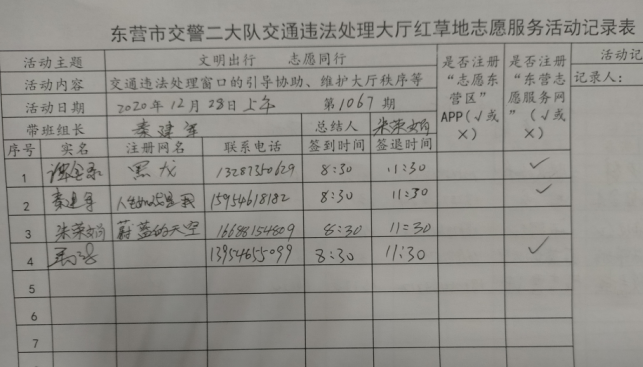 东营市交警二大队交通违法处理大厅红草地志愿服务活动记录表
活动主题 文明出行 志愿同行 是否注册“志愿东营区”APP(√或×) 是否注册“东营志愿服务网”(√或×) 活动记
活动内容 交通违法处理窗口的引导协助、维护大厅秩序等 记录人:
活动日期 2020年12月28日上午 第1067期
带班组长 秦建军 总结人 朱荣娟
序号 实名 注册网名 联系电话 签到时间 签退时间
1 黑龙 13287350629 8:30 11:30 √
2 秦建军 15954618182 8:30 11:30 √
3 朱荣娟 蔚蓝的天空 16688154809 8:30 11:30
4 13954655099 8:30 11:30 √
5
6
7